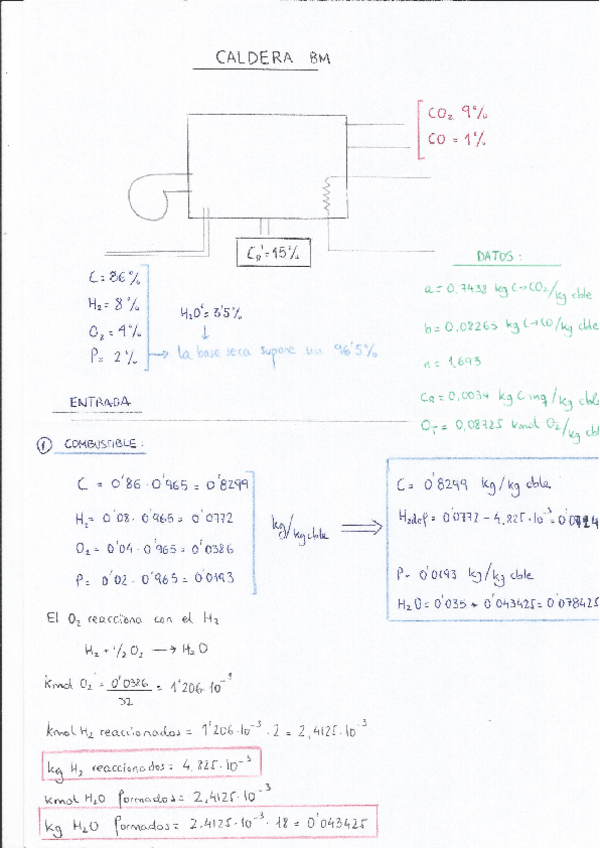 CALDERA BM
CO₂ 9%
CO = 1%
C'R = 15%
DATOS:
C = 86%
H₂ = 8%
O₂ = 4%
P = 2%
H₂O' = 3'5%
la base seca supone un 96'5%
a = 0,7438 kg C→CO₂/kg cble
b = 0,08265 kg C→CO/kg cble
n = 1,693
CR = 0,0034 kg C inq/kg cble
OT = 0,08725 kmol O₂/kg cble
ENTRADA
① COMBUSTIBLE:
C = 0'86 · 0'965 = 0'8299
H₂ = 0'08 · 0'965 = 0'0772
O₂ = 0'04 · 0'965 = 0'0386
P = 0'02 · 0'965 = 0'0193
kg/kg cble
C = 0'8299 kg/kg cble
H₂ def = 0'0772 - 4,825·10⁻³ = 0'0724
P = 0'0193 kg/kg cble
H₂O = 0'035 + 0'043425 = 0'078425
El O₂ reacciona con el H₂
H₂ + ½ O₂ → H₂O
kmol O₂ = 0'0386/32 = 1'206·10⁻³
kmol H₂ reaccionados = 1'206·10⁻³ · 2 = 2,4125·10⁻³
kg H₂ reaccionados = 4,825·10⁻³
kmol H₂O formados = 2,4125·10⁻³
kg H₂O formados = 2,4125·10⁻³ · 18 = 0'043425